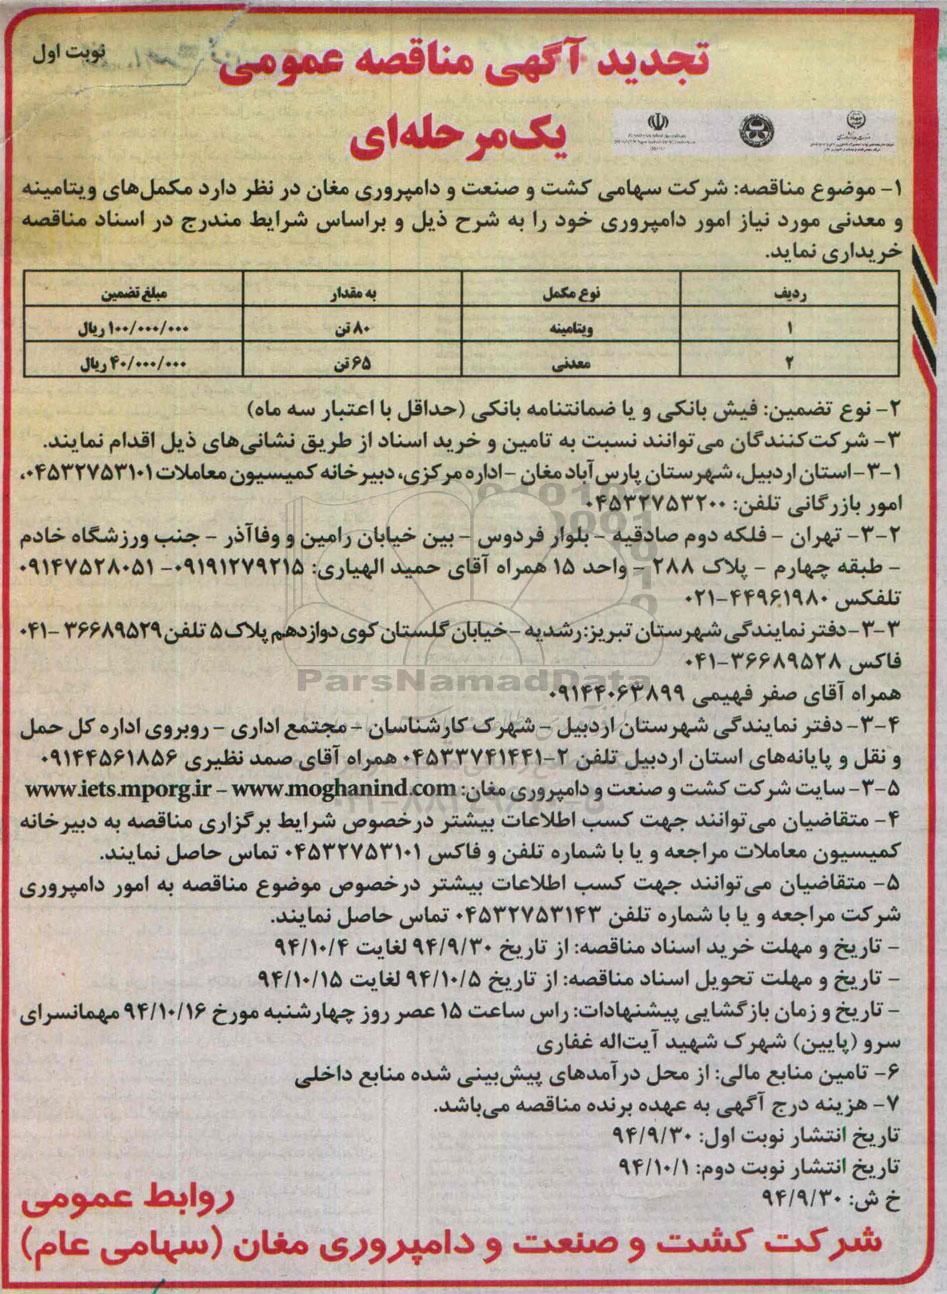 نوبت اول
تجدید آگهی مناقصه عمومی
یک‌مرحله‌ای
۱- موضوع مناقصه: شرکت سهامی کشت و صنعت و دامپروری مغان در نظر دارد مکمل‌های ویتامینه
و معدنی مورد نیاز امور دامپروری خود را به شرح ذیل و براساس شرایط مندرج در اسناد مناقصه
خریداری نماید.
ردیف نوع مکمل به مقدار مبلغ تضمین
۱ ویتامینه ۸۰ تن ۱۰۰/۰۰۰/۰۰۰ ریال
۲ معدنی ۶۵ تن ۴۰/۰۰۰/۰۰۰ ریال
۲- نوع تضمین: فیش بانکی و یا ضمانتنامه بانکی (حداقل با اعتبار سه ماه)
۳- شرکت‌کنندگان می‌توانند نسبت به تامین و خرید اسناد از طریق نشانی‌های ذیل اقدام نمایند.
۳-۱- استان اردبیل، شهرستان پارس‌آباد مغان - اداره مرکزی، دبیرخانه کمیسیون معاملات ۰۴۵۳۲۷۵۳۱۰۱،
امور بازرگانی تلفن: ۰۴۵۳۲۷۵۳۲۰۰
۳-۲- تهران - فلکه دوم صادقیه - بلوار فردوس - بین خیابان رامین و وفاآذر - جنب ورزشگاه خادم
- طبقه چهارم - پلاک ۲۸۸ - واحد ۱۵ همراه آقای حمید الهیاری: ۰۹۱۹۱۲۷۹۲۱۵- ۰۹۱۴۷۵۲۸۰۵۱
تلفکس ۴۴۹۶۱۹۸۰-۰۲۱
۳-۳- دفتر نمایندگی شهرستان تبریز: رشدیه - خیابان گلستان کوی دوازدهم پلاک ۵ تلفن ۳۶۶۸۹۵۲۹ -۰۴۱
فاکس ۳۶۶۸۹۵۲۸-۰۴۱
همراه آقای صفر فهیمی ۰۹۱۴۴۰۶۳۸۹۹
۳-۴- دفتر نمایندگی شهرستان اردبیل - شهرک کارشناسان - مجتمع اداری - روبروی اداره کل حمل
و نقل و پایانه‌های استان اردبیل تلفن ۲-۰۴۵۳۳۷۴۱۴۴۱ همراه آقای صمد نظیری ۰۹۱۴۴۵۶۱۸۵۶
۳-۵- سایت شرکت کشت و صنعت و دامپروری مغان: www.iets.mporg.ir - www.moghanind.com
۴- متقاضیان می‌توانند جهت کسب اطلاعات بیشتر درخصوص شرایط برگزاری مناقصه به دبیرخانه
کمیسیون معاملات مراجعه و یا با شماره تلفن و فاکس ۰۴۵۳۲۷۵۳۱۰۱ تماس حاصل نمایند.
۵- متقاضیان می‌توانند جهت کسب اطلاعات بیشتر درخصوص موضوع مناقصه به امور دامپروری
شرکت مراجعه و یا با شماره تلفن ۰۴۵۳۲۷۵۳۱۴۳ تماس حاصل نمایند.
- تاریخ و مهلت خرید اسناد مناقصه: از تاریخ ۹۴/۹/۳۰ لغایت ۹۴/۱۰/۴
- تاریخ و مهلت تحویل اسناد مناقصه: از تاریخ ۹۴/۱۰/۵ لغایت ۹۴/۱۰/۱۵
- تاریخ و زمان بازگشایی پیشنهادات: راس ساعت ۱۵ عصر روز چهارشنبه مورخ ۹۴/۱۰/۱۶ مهمانسرای
سرو (پایین) شهرک شهید آیت‌اله غفاری
۶- تامین منابع مالی: از محل درآمدهای پیش‌بینی شده منابع داخلی
۷- هزینه درج آگهی به عهده برنده مناقصه می‌باشد.
تاریخ انتشار نوبت اول: ۹۴/۹/۳۰
تاریخ انتشار نوبت دوم: ۹۴/۱۰/۱
خ ش: ۹۴/۹/۳۰
روابط عمومی
شرکت کشت و صنعت و دامپروری مغان (سهامی عام)
ParsNamadData